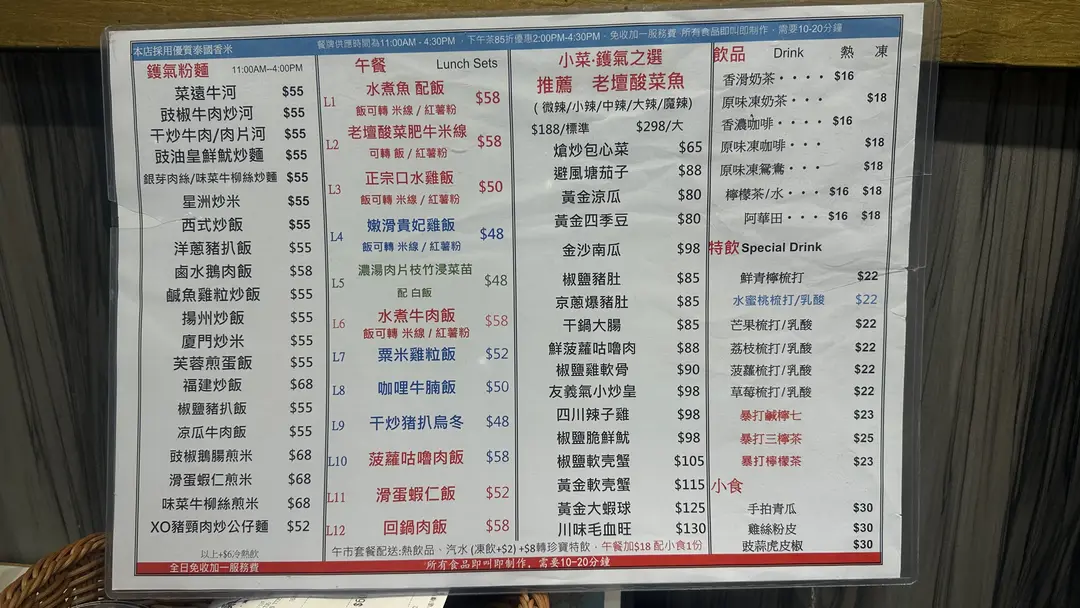 本店採用優質泰國香米
餐牌供應時間為11:00AM - 4:30PM﹒下午茶85折優惠2:00PM-4:30PM﹒免收加一服務費 所有食品即叫即制作﹒需要10-20分鐘
鑊氣粉麵 11:00AM--4:00PM
菜遠牛河 $55
豉椒牛肉炒河 $55
干炒牛肉/肉片河 $55
豉油皇鮮魷炒麵 $55
銀芽肉絲/味菜牛柳絲炒麵 $55
星洲炒米 $55
西式炒飯 $55
洋蔥豬扒飯 $55
鹵水鵝肉飯 $58
鹹魚雞粒炒飯 $55
揚州炒飯 $55
廈門炒米 $55
芙蓉煎蛋飯 $55
福建炒飯 $68
椒鹽豬扒飯 $55
凉瓜牛肉飯 $55
豉椒鵝腸煎米 $68
滑蛋蝦仁煎米 $68
味菜牛柳絲煎米 $68
XO豬頸肉炒公仔麵 $52
以上+$6冷熱飲
全日免收加一服務費
午餐 Lunch Sets
L1 水煮魚 配飯 $58
飯可轉 米線 / 紅薯粉
L2 老壇酸菜肥牛米線 $58
可轉 飯 / 紅薯粉
L3 正宗口水雞飯 $50
飯可轉 米線 / 紅薯粉
L4 嫩滑貴妃雞飯 $48
飯可轉 米線 / 紅薯粉
L5 濃湯肉片枝竹浸菜苗 $48
配 白飯
L6 水煮牛肉飯 $58
飯可轉 米線 / 紅薯粉
L7 粟米雞粒飯 $52
L8 咖哩牛腩飯 $50
L9 干炒猪扒烏冬 $48
L10 菠蘿咕嚕肉飯 $58
L11 滑蛋蝦仁飯 $52
L12 回鍋肉飯 $58
小菜·鑊氣之選
推薦 老壇酸菜魚
( 微辣/小辣/中辣/大辣/魔辣)
$188/標準 $298/大
熗炒包心菜 $65
避風塘茄子 $88
黃金涼瓜 $80
黃金四季豆 $80
金沙南瓜 $98
椒鹽豬肚 $85
京蔥爆豬肚 $85
干鍋大腸 $85
鮮菠蘿咕嚕肉 $88
椒鹽雞軟骨 $90
友義氣小炒皇 $98
四川辣子雞 $98
椒鹽脆鮮魷 $98
椒鹽軟壳蟹 $105
黃金軟壳蟹 $115
黃金大蝦球 $125
川味毛血旺 $130
午市套餐配送:熱飲品、汽水 (凍飲+$2) +$8轉珍寶特飲﹒午餐加$18 配小食1份
*所有食品即叫即制作﹐需要10-20分鐘
飲品 Drink 熱 凍
香滑奶茶﹒﹒﹒﹒ $16
原味凍奶茶﹒﹒﹒ $18
香濃咖啡﹒﹒﹒﹒ $16
原味凍咖啡﹒﹒﹒ $18
原味凍鴛鴦﹒﹒﹒ $18
檸檬茶/水﹒﹒﹒ $16 $18
阿華田﹒﹒﹒ $16 $18
特飲 Special Drink
鮮青檸梳打 $22
水蜜桃梳打/乳酸 $22
芒果梳打/乳酸 $22
荔枝梳打/乳酸 $22
菠蘿梳打/乳酸 $22
草莓梳打/乳酸 $22
暴打鹹檸七 $23
暴打三檸茶 $25
暴打檸檬茶 $23
小食
手拍青瓜 $30
雞絲粉皮 $30
豉蒜虎皮椒 $30